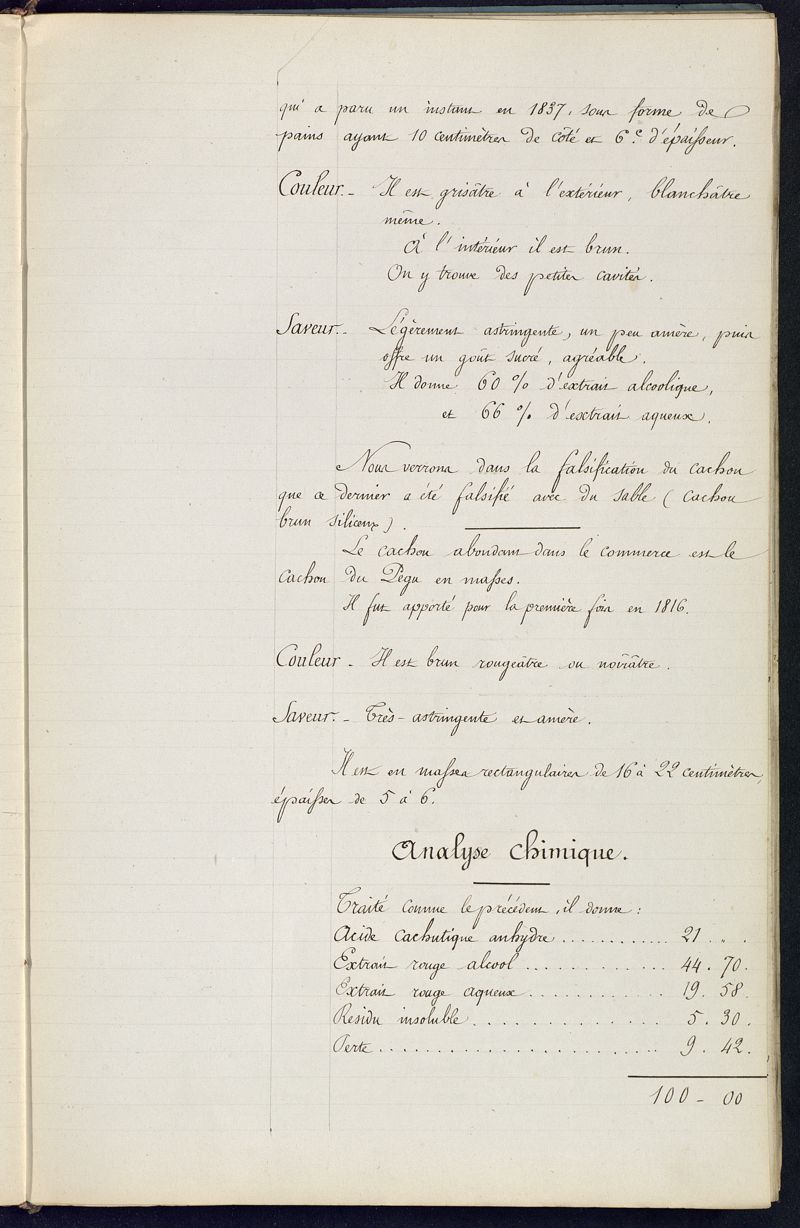 qui a paru un instant en 1837, sous forme de
pains ayant 10 centimètres de côté et 6 c. d'épaisseur.
Couleur. - Il est grisâtre à l'extérieur, blanchâtre
même.
À l'intérieur il est brun.
On y trouve des petites cavités.
Saveur. - Légèrement astringente, un peu amère, puis
offre un goût sucré, agréable.
Il donne 60 % d'extrait alcoolique,
et 66 % d'exctrait aqueux.
Nous verrons dans la falsification du cachou
que ce dernier a été falsifié avec du sable (cachou
brun siliceux).
Le cachou abondant dans le commerce est le
cachou du Pégu en masses.
Il fut apporté pour la première fois en 1816.
Couleur - Il est brun rougeâtre ou noirâtre.
Saveur. - Très-astringente et amère.
Il est en masses rectangulaires de 16 à 22 centimètres,
épaisses de 5 à 6.
Analyse chimique.
Traité comme le précédent, il donne :
Acide cachutique anhydre ............ 21 " .
Extrait rouge alcool .............. 44. 70.
Extrait rouge aqueux ............. 19. 58.
Residu insoluble ................ 5. 30.
Perte ......................... 9. 42.
100 - 00